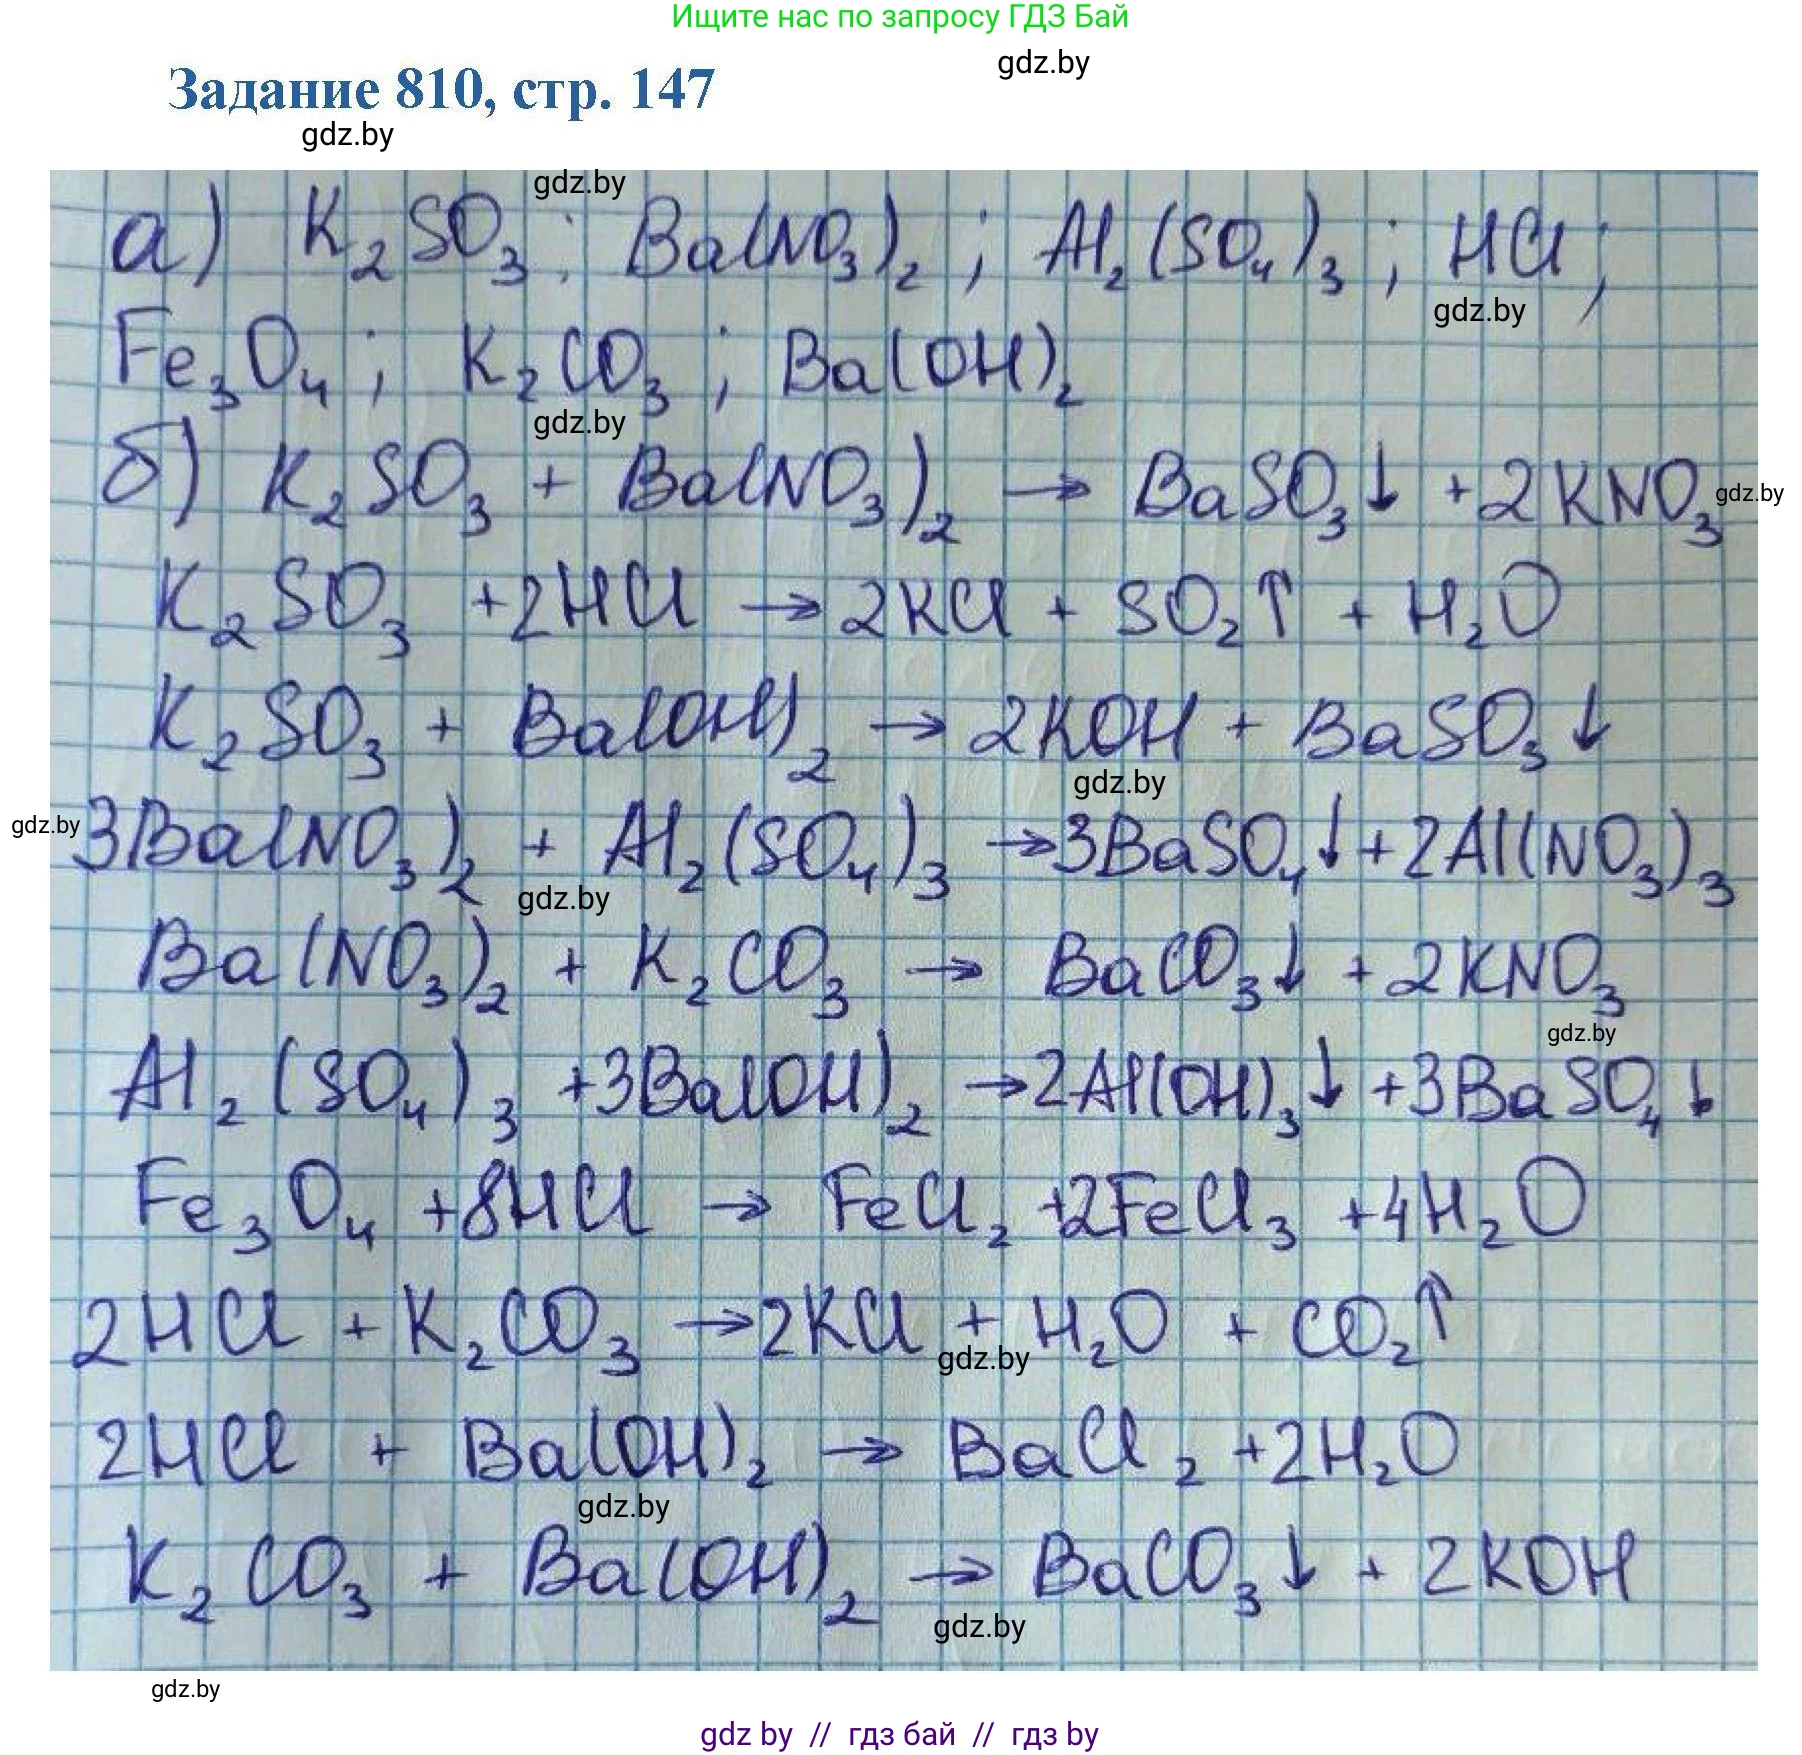 Ищите нас по запросу ГДЗ Бай
gdz.by
Задание 810, стр. 147
gdz.by
gdz.by
а) K₂SO₃; Ba(NO₃)₂; Al₂(SO₄)₃; HCl;
gdz.by
Fe₃O₄; K₂CO₃; Ba(OH)₂
gdz.by
б) K₂SO₃ + Ba(NO₃)₂ → BaSO₃↓ + 2KNO₃
gdz.by
K₂SO₃ + 2HCl → 2KCl + SO₂↑ + H₂O
K₂SO₃ + Ba(OH)₂ → 2KOH + BaSO₃↓
gdz.by
gdz.by
3Ba(NO₃)₂ + Al₂(SO₄)₃ → 3BaSO₄↓ + 2Al(NO₃)₃
gdz.by
Ba(NO₃)₂ + K₂CO₃ → BaCO₃↓ + 2KNO₃
gdz.by
Al₂(SO₄)₃ + 3Ba(OH)₂ → 2Al(OH)₃↓ + 3BaSO₄↓
Fe₃O₄ + 8HCl → FeCl₂ + 2FeCl₃ + 4H₂O
2HCl + K₂CO₃ → 2KCl + H₂O + CO₂↑
gdz.by
2HCl + Ba(OH)₂ → BaCl₂ + 2H₂O
gdz.by
K₂CO₃ + Ba(OH)₂ → BaCO₃↓ + 2KOH
gdz.by
gdz.by
gdz by // гдз бай // гдз by